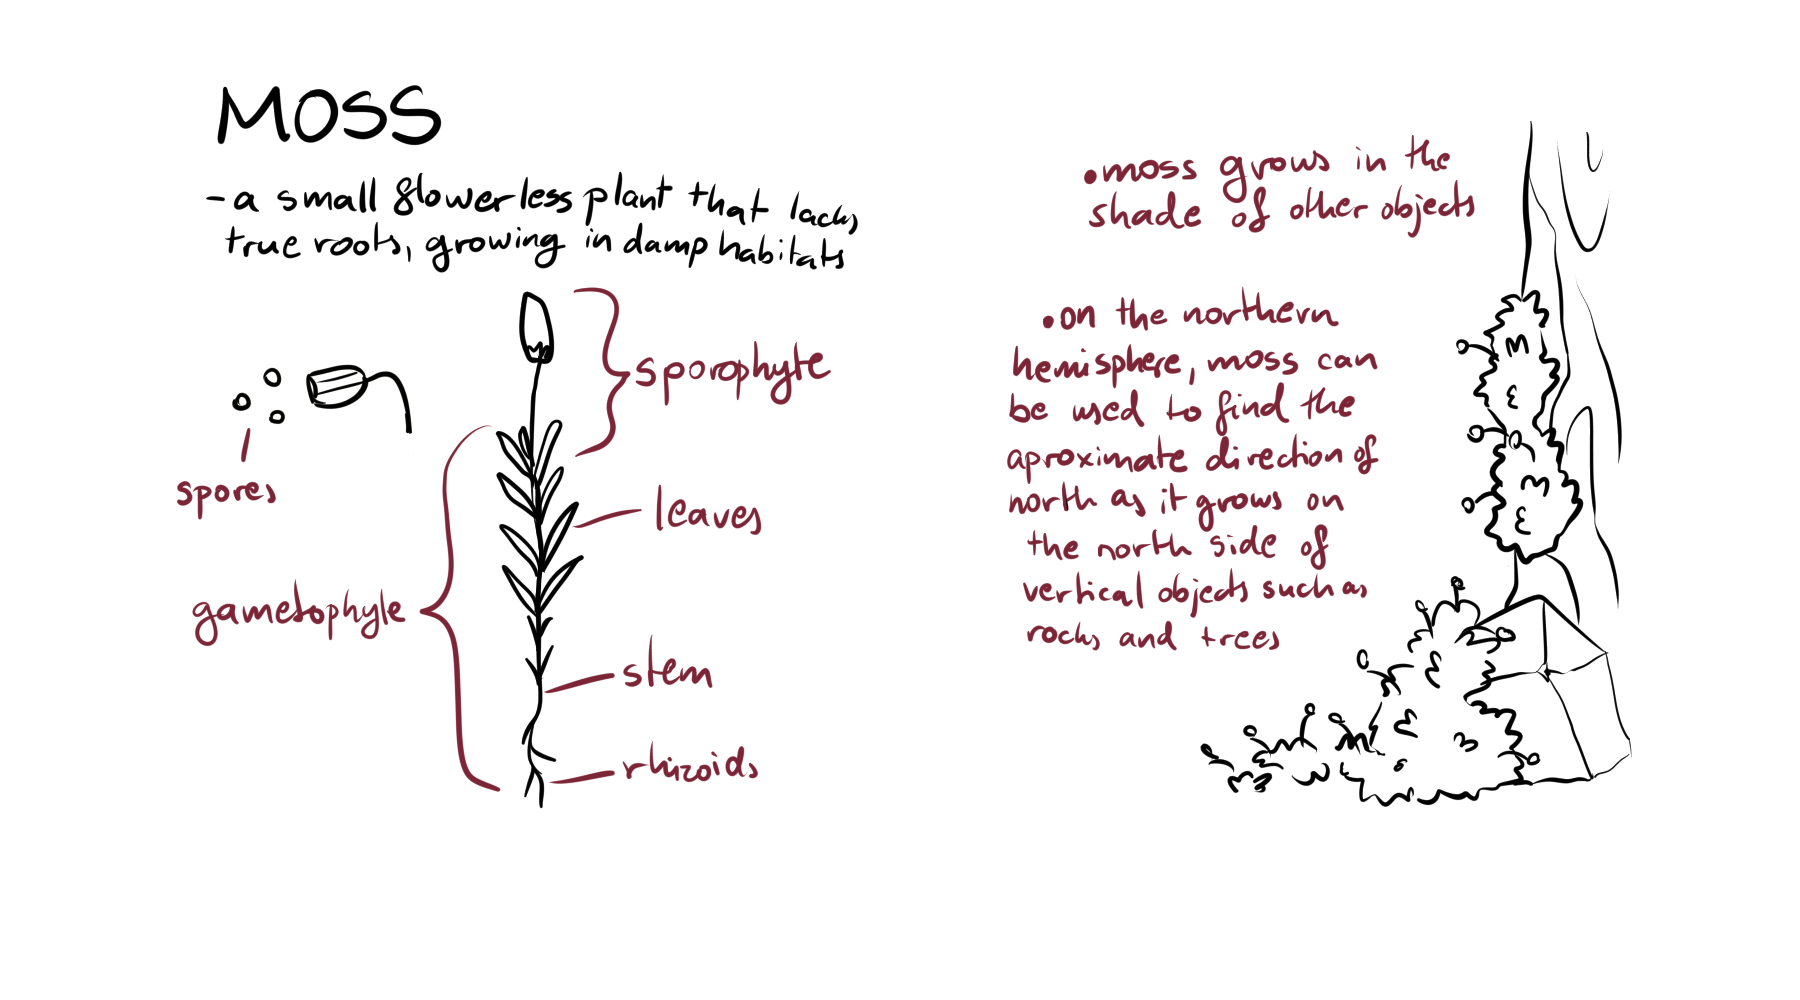 MOSS
- a small flowerless plant that lacks
true roots, growing in damp habitats
sporophyte
spores
leaves
gametophyte
stem
rhizoids
•moss grows in the
shade of other objects
•on the northern
hemisphere, moss can
be used to find the
aproximate direction of
north as it grows on
the north side of
vertical objects such as
rocks and trees